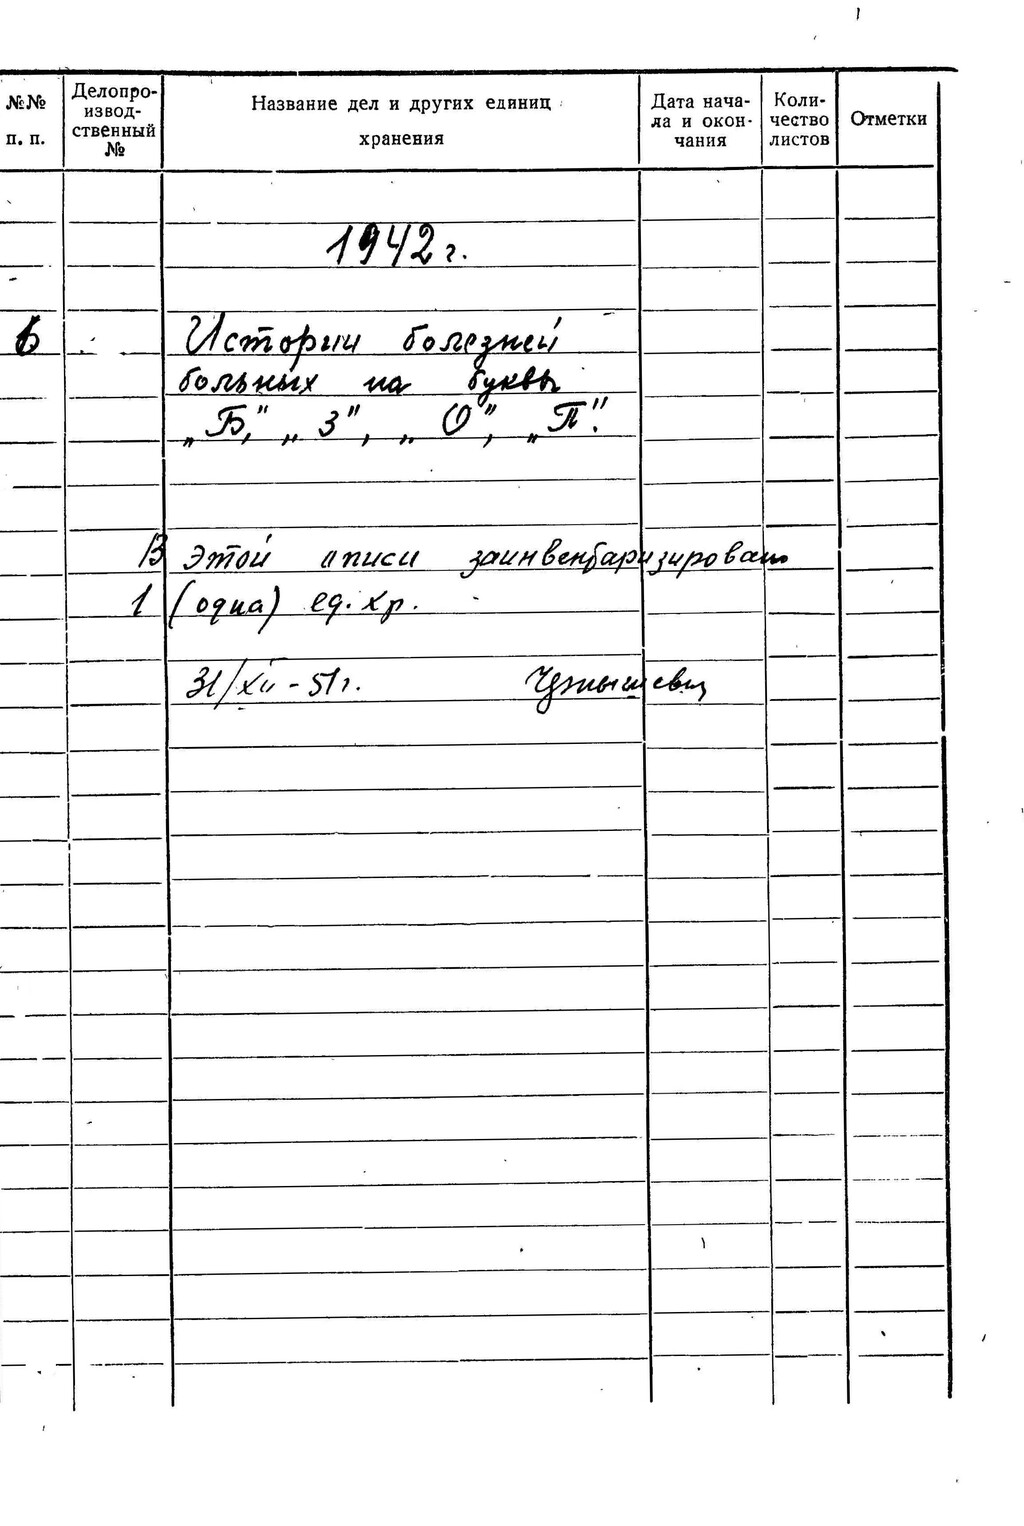 №№ п. п.
Делопро-
извод-
ственный
№
Название дел и других единиц
хранения
Дата нача-
ла и окон-
чания
Коли-
чество
листов
Отметки
1942 г.
Истории болезней
больных на буквы
„Б", „З", „О", „П".
В этой описи заинвентаризировано
1 (одна) ед. хр.
31/XII - 51 г.